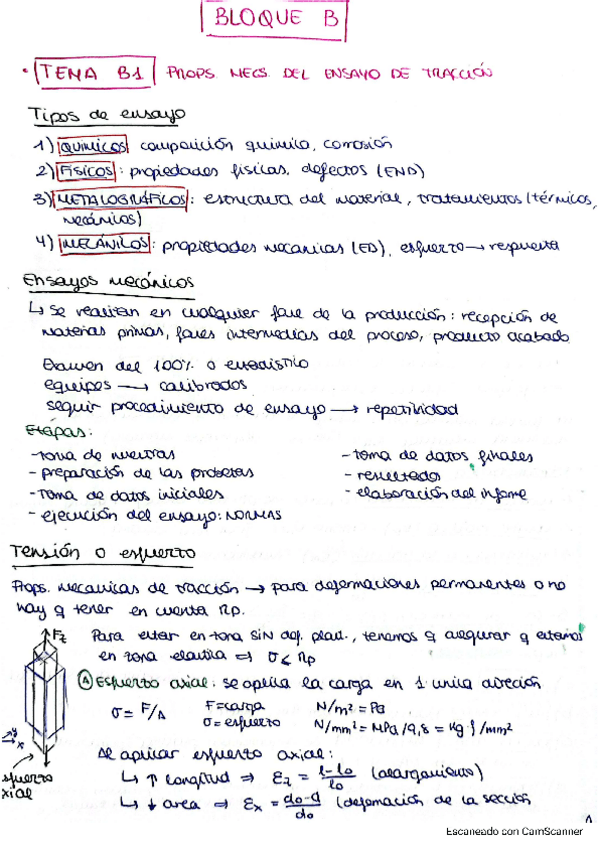 BLOQUE B
• TEMA B1 PROPS. MECS. DEL ENSAYO DE TRACCIÓN
Tipos de ensayo
1) QUÍMICOS: composición química, corrosión
2) FÍSICOS: propiedades físicas, defectos (END)
3) METALOGRÁFICOS: estructura del material, tratamientos (térmicos,
mecánicos)
4) MECÁNICOS: propiedades mecánicas (ED), esfuerzo → respuesta
Ensayos mecánicos
↳ Se realizan en cualquier fase de la producción: recepción de
materias primas, fases intermedias del proceso, producto acabado
Examen del 100% o estadístico
equipos → calibrados
seguir procedimiento de ensayo → repetividad
Etapas:
- toma de muestras
- preparación de las probetas
- Toma de datos iniciales
- ejecución del ensayo: NORMAS
- toma de datos finales
- resultados
- elaboración del informe
Tensión o esfuerzo
Props. mecánicas de tracción → para deformaciones permanentes o no
hay q tener en cuenta Rp.
Para estar en zona SIN def. plast., tenemos q asegurar q estamos
en zona elástica ⇒ σ < Rp
A Esfuerzo axial: se aplica la carga en 1 única dirección
σ = F/A F = carga N/m² = Pa
σ = esfuerzo N/mm² = MPa /9,8 = Kg f/mm²
Al aplicar esfuerzo axial:
↳ ↑ longitud ⇒ εz = l-lo/lo (alargamiento)
↳ ↓ area ⇒ εx = do-d/do (deformación de la sección
Fz
y
x
esfuerzo
axial
1
Escaneado con CamScanner